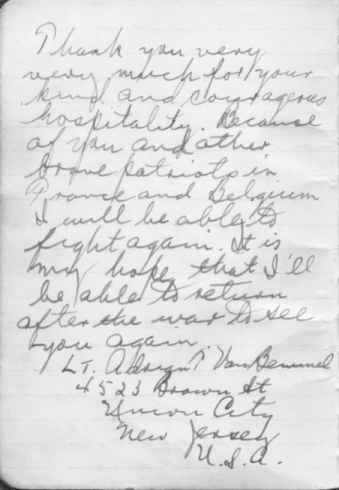 Thank you very
very much for your
kind and courageous
hospitality. Because
of you and other
brave patriots in
France and Belgium
I will be able to
fight again. It is
my hope that I'll
be able to return
after the war to see
you again.
Lt. VanBemmel
4523 Brown St
Union City
New Jersey
U.S.A.